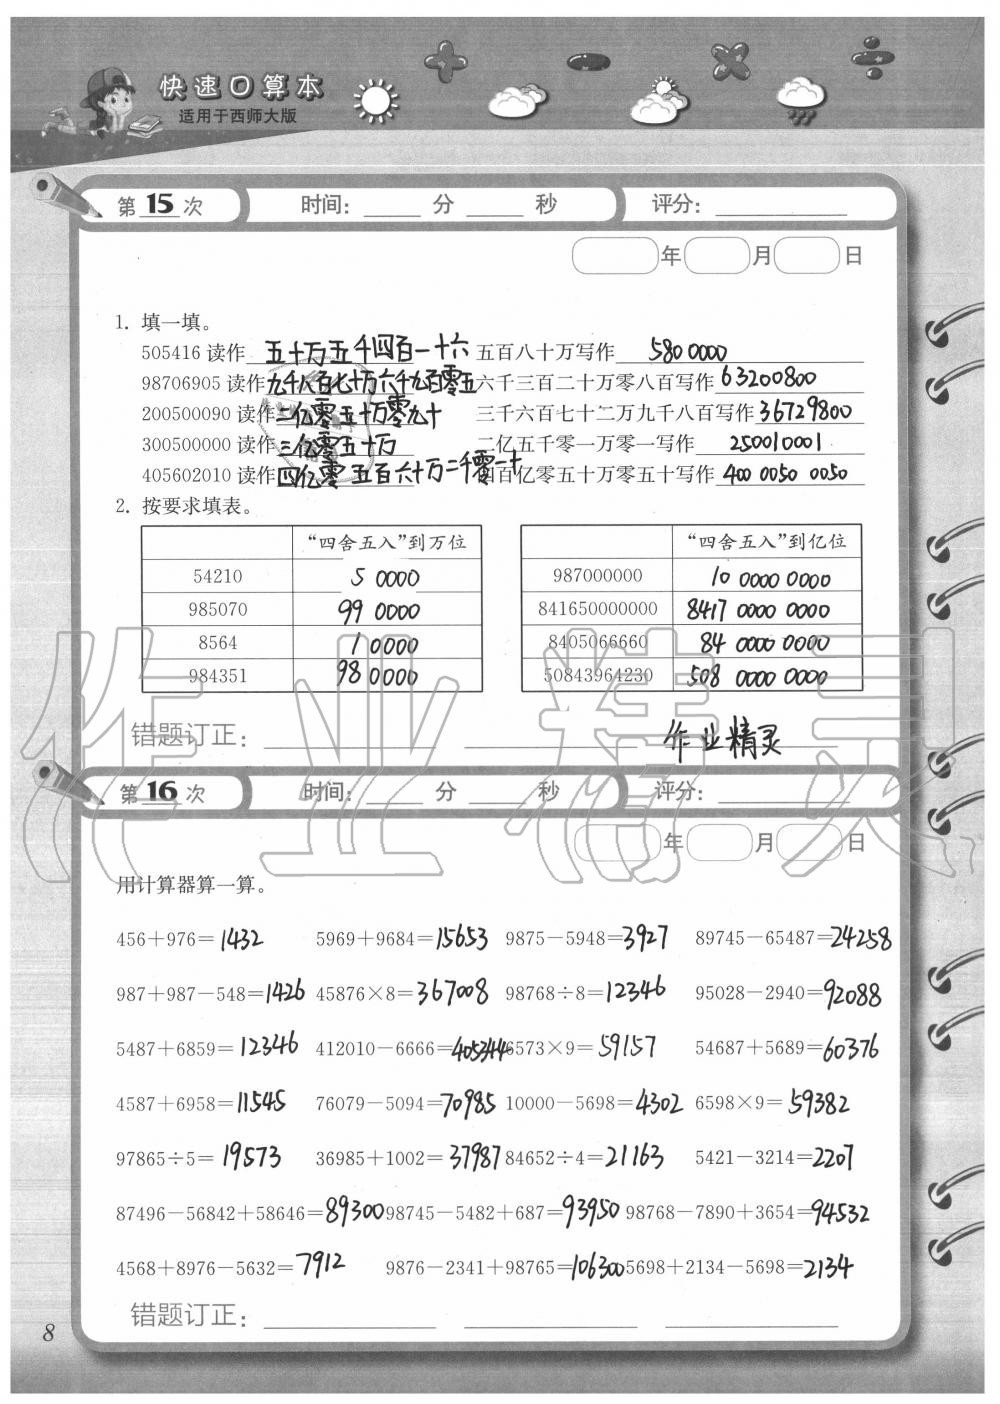 快速口算本
适用于西师大版
第 15 次 时间：____ 分 ____ 秒 评分：________
年 月 日
1. 填一填。
505416 读作 五十万五千四百一十六 五百八十万写作 580 0000
98706905 读作 九千八百七十万六千九百零五 六千三百二十万零八百写作 63200800
200500090 读作 二亿零五十万零九十 三千六百七十二万九千八百写作 36729800
300500000 读作 三亿零五十万 二亿五千零一万零一写作 250010001
405602010 读作 四亿零五百六十万二千零一十 四百亿零五十万零五十写作 400 0050 0050
2. 按要求填表。
“四舍五入”到万位 “四舍五入”到亿位
54210 5 0000 987000000 10 0000 0000
985070 99 0000 841650000000 8417 0000 0000
8564 1 0000 8405066660 84 0000 0000
984351 98 0000 50843964230 508 0000 0000
错题订正：________ ________ 作业精灵
第 16 次 时间：____ 分 ____ 秒 评分：________
年 月 日
用计算器算一算。
456＋976＝1432 5969＋9684＝15653 9875－5948＝3927 89745－65487＝24258
987＋987－548＝1426 45876×8＝367008 98768÷8＝12346 95028－2940＝92088
5487＋6859＝12346 412010－6666＝405344 6573×9＝59157 54687＋5689＝60376
4587＋6958＝11545 76079－5094＝70985 10000－5698＝4302 6598×9＝59382
97865÷5＝19573 36985＋1002＝37987 84652÷4＝21163 5421－3214＝2207
87496－56842＋58646＝89300 98745－5482＋687＝93950 98768－7890＋3654＝94532
4568＋8976－5632＝7912 9876－2341＋98765＝106300 5698＋2134－5698＝2134
错题订正：________ ________ ________
8
作业精灵